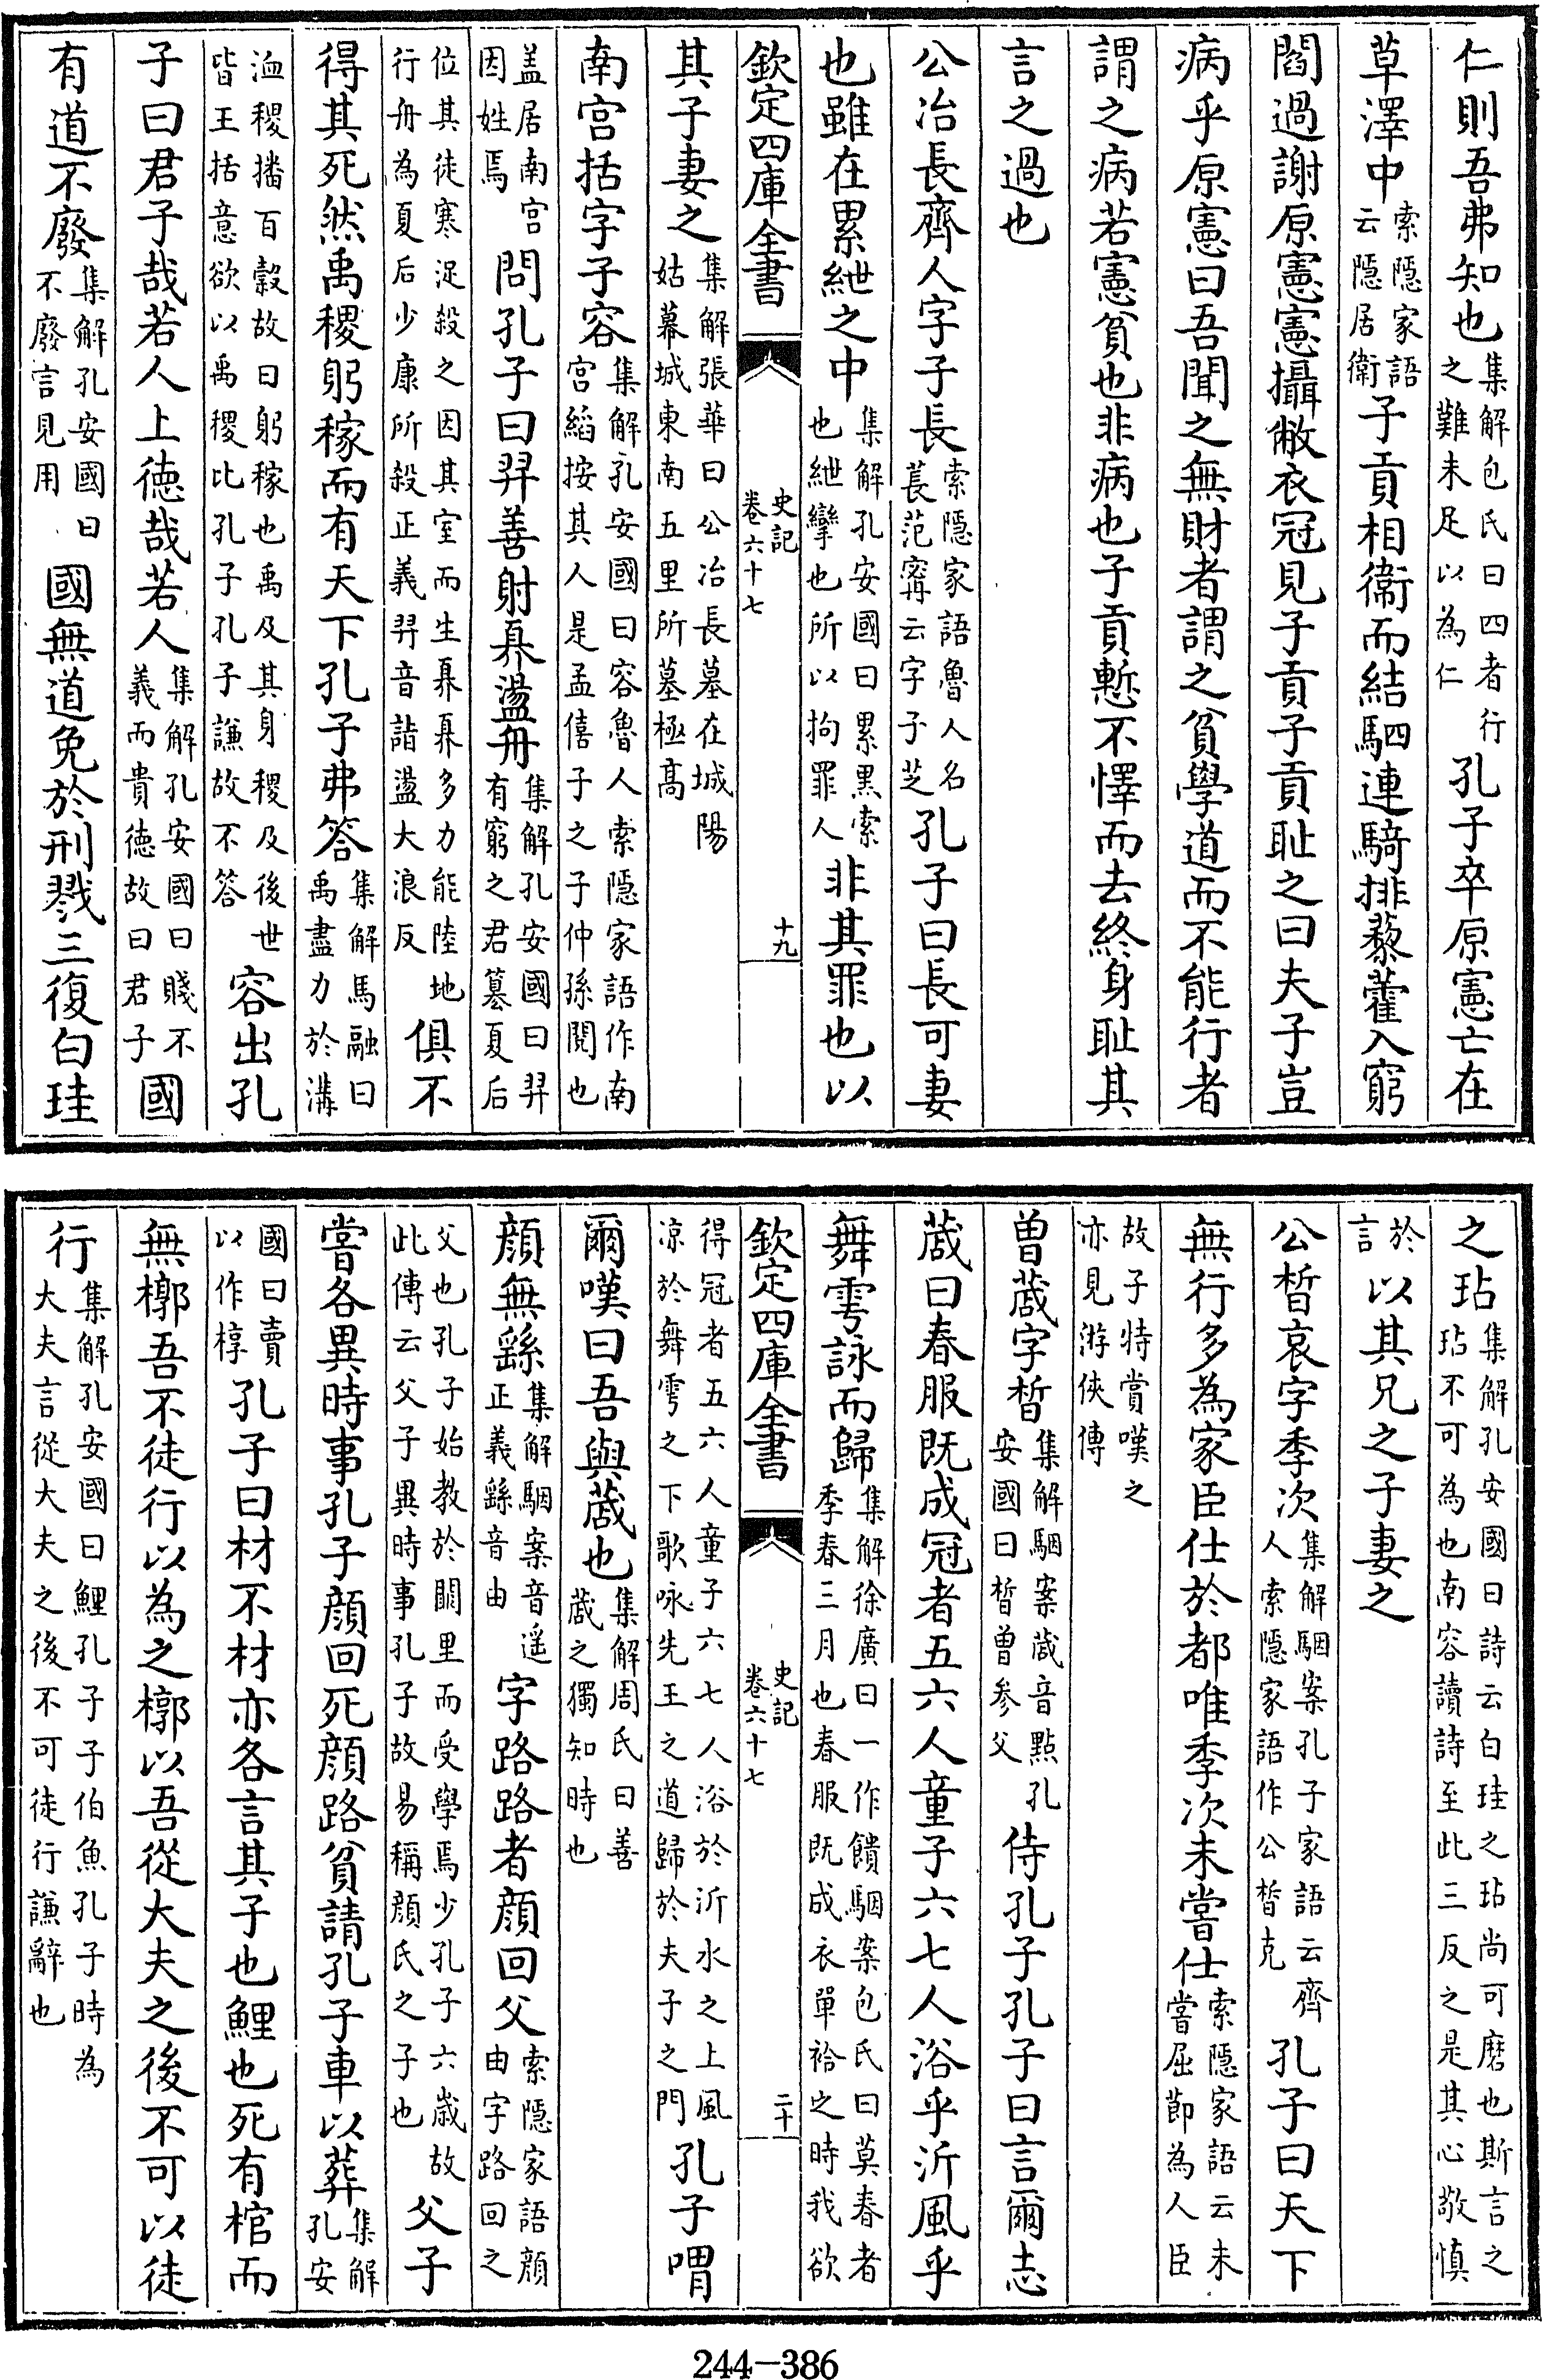 仁則吾弗知也集解包氏曰四者行之難未足以為仁孔子卒原憲亡在
草澤中索隱家語云隱居衛子貢相衞而結駟連騎排藜藿入窮
閻過謝原憲憲攝敝衣冠見子貢子貢耻之曰夫子豈
病乎原憲曰吾聞之無財者謂之貧學道而不能行者
謂之病若憲貧也非病也子貢慙不懌而去終身耻其
言之過也
公冶長齊人字子長索隱家語魯人名萇范寗云字子芝孔子曰長可妻
也雖在累紲之中集解孔安國曰累黑索也紲攣也所以拘罪人非其罪也以
欽定四庫全書 史記卷六十七 十九
其子妻之集解張華曰公冶長墓在城陽姑幕城東南五里所墓極高
南宫括字子容集解孔安國曰容魯人索隱家語作南宫縚按其人是孟僖子之子仲孫閱也
盖居南宫因姓焉問孔子曰羿善射奡盪舟集解孔安國曰羿有窮之君簒夏后
位其徒寒浞殺之因其室而生奡奡多力能陸地行舟為夏后少康所殺正義羿音詣盪大浪反俱不
得其死然禹稷躬稼而有天下孔子弗答集解馬融曰禹盡力於溝
洫稷播百穀故曰躬稼也禹及其身稷及後世皆王括意欲以禹稷比孔子孔子謙故不答容出孔
子曰君子哉若人上徳哉若人集解孔安國曰賤不義而貴徳故曰君子國
有道不廢集解孔安國曰不廢言見用國無道免於刑戮三復白珪
之玷集解孔安國曰詩云白珪之玷尚可磨也斯言之玷不可為也南容讀詩至此三反之是其心敬慎
於言以其兄之子妻之
公晳哀字季次集解駰案孔子家語云齊人索隱家語作公晳克孔子曰天下
無行多為家臣仕於都唯季次未嘗仕索隱家語云未嘗屈節為人臣
故子特賞嘆之亦見游俠傳
曽蒧字晳集解駰案蒧音點孔安國曰晳曽参父侍孔子孔子曰言爾志
蒧曰春服既成冠者五六人童子六七人浴乎沂風乎
舞雩詠而歸集解徐廣曰一作饋駰案包氏曰莫春者季春三月也春服既成衣單袷之時我欲
欽定四庫全書 史記卷六十七 二十
得冠者五六人童子六七人浴於沂水之上風凉於舞雩之下歌咏先王之道歸於夫子之門孔子喟
爾嘆曰吾與蒧也集解周氏曰善蒧之獨知時也
顔無繇集解駰案音遥正義繇音由字路路者顔回父索隱家語顔由字路回之
父也孔子始教於闕里而受學焉少孔子六歳故此傳云父子異時事孔子故易稱顔氏之子也父子
嘗各異時事孔子顔回死顔路貧請孔子車以葬集解孔安
國曰賣以作椁孔子曰材不材亦各言其子也鯉也死有棺而
無槨吾不徒行以為之槨以吾從大夫之後不可以徒
行集解孔安國曰鯉孔子子伯魚孔子時為大夫言從大夫之後不可徒行謙辭也
244-386